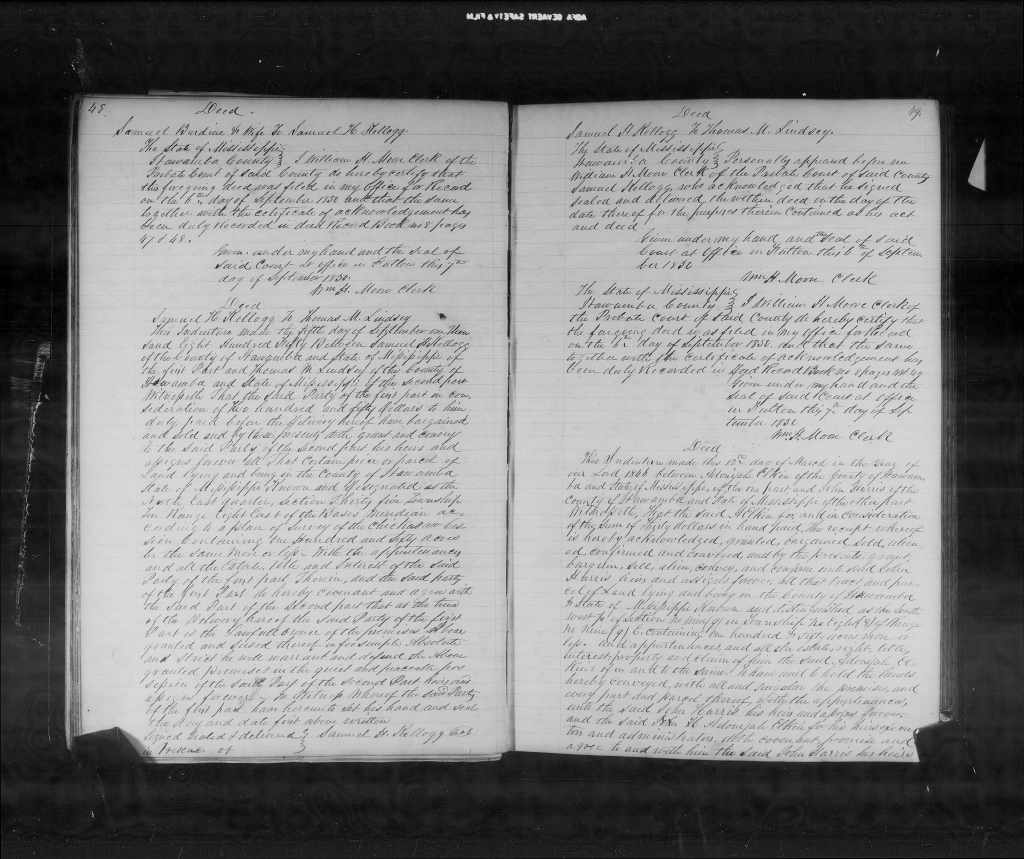 AGFA GEVAERT SAFETY FILM
48.
Deed.
Samuel Burdine & Wife To Samuel H. Kellogg.
The State of Mississippi
Itawamba County } I William H. Moore Clerk of the
Probate Court of Said County do hereby certify that
the foregoing Deed was filed in my Office for Record
on the 6th day of September 1850 and that the same
together with the certificate of acknowledgement has
been duly recorded in deed Record Book no 8 pages
47 & 48.
Given under my hand and the Seal of
Said Court at office in Fulton this 7th
day of September 1850.
Wm H. Moore Clerk
Deed
Samuel H. Kellogg To Thomas M. Lindsey
This Indenture made the fifth day of September one thou
sand Eight Hundred & fifty Between Samuel H Kellogg
of the County of Itawamba and State of Mississippi of
the first Part and Thomas M Lindsey of the County of
Itawamba and State of Mississippi of the Second part
Witnesseth That the Said Party of the first part in con
sideration of Two hundred and fifty dollars to him
duly paid before the delivery hereof have bargained
and Sold and by these presents doth grant and convey
to the Said Party of the Second part his heirs and
assigns forever all That certain piece or parcel of
Land lying and being in the County of Itawamba
State of Mississippi Known and designated as the
East quarter, Section Thirty five Township
in Range Eight East of the Basis meridian ac-
cording to a plan of Survey of the Chickasaw ces
sion Containing one hundred and Sixty acres
be the Same more or less With the appurtenances
and all the Estate, title and Interest of the Said
Party of the first part Therein, and the Said party
of the first Part do hereby covenant and agree with
the Said Part of the Second part that at the time
of the delivery hereof the Said Party of the first
Part is the lawful owner of the premises above
granted and Seized thereof in fee simple Absolute
and that he will warrant and defend the above
granted premises in the quiet and peaceable pos
session of the Said Part of the Second Part his heirs
assigns forever. In Witness Whereof the Said Party
of the first part have hereunto Set his hand and Seal
the day and date first above written
Signed Sealed & delivered } Samuel H. Kellogg Seal
in Presence of }
49.
Deed
Samuel H Kellogg To Thomas M. Lindsey.
The State of Mississippi
Itawamba County } Personally appeared before me
William H Moore Clerk of the Probate Court of Said County
Samuel Kellogg, who acknowledged that he signed
Sealed and delivered the within deed on the day of the
date thereof for the purposes therein Contained as his act
and deed
Given under my hand and the Seal of Said
Court at Office in Fulton this 6th of Septem
ber 1850
Wm H. Moore Clerk
The State of Mississippi
Itawamba County } I William H Moore Clerk of
the Probate Court of Said County do hereby certify that
the foregoing deed was filed in my Office for Record
on the 6th day of September 1850. and that the same
together with the certificate of acknowledgement has
been duly recorded in Deed Record Book no 8 pages 48 & 49
Given under my hand and the
Seal of Said Court at office
in Fulton this 7th day of Sep
tember 1850
Wm H. Moore Clerk
Deed
This Indenture made this 10th day of March in the year of
our Lord 1846 between Adonijah Elkin of the County of Itawam
ba and State of Mississippi of the one part and John Harris of the
County of Itawamba and State of Mississippi of the other part
Witnesseth, that the Said A Elkin for and in consideration
of the Sum of thirty dollars in hand paid, the receipt whereof
is hereby acknowledged, granted, bargained Sold, alien
ed, confirmed and conveyed and by the presents grant,
bargain, Sell, alien, convey, and confirm unto said John
Harris heirs and assigns forever all that tract and par
cel of Land lying and being in the County of Itawamba
& State of Mississippi Known and distinguished as the South
west of Section in Township no Eight of Range
no Nine (9) E. containing one hundred & sixty acres more or
less. and appurtenances and all the estate, right, title,
interest, property and claim of from the Said Adonijah El
kin of in and to the Same, to have and to hold the lands
hereby conveyed, with all and singular the premises, and
every part and parcel thereof, with the appurtenances,
unto the Said John Harris his heirs and assigns forever
and the Said Adonijah Elkin for his heirs, execu
tors and administrators doth covenant, promise and
agree to and with him the Said John Harris his heirs